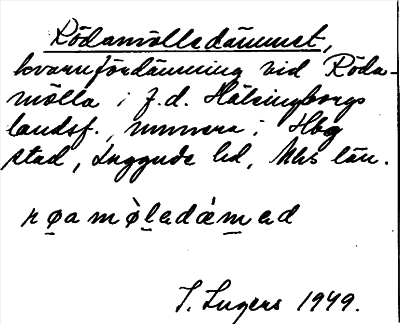 Rödamölledämmet,
kvarnfördämning vid Röda-
mölla i f.d. Hälsingborgs
landsf., numera i Hbg
stad, Luggude hd, Mls län.
rø̱amò̱ḻadä́m̱ad
I. Ingers 1949.